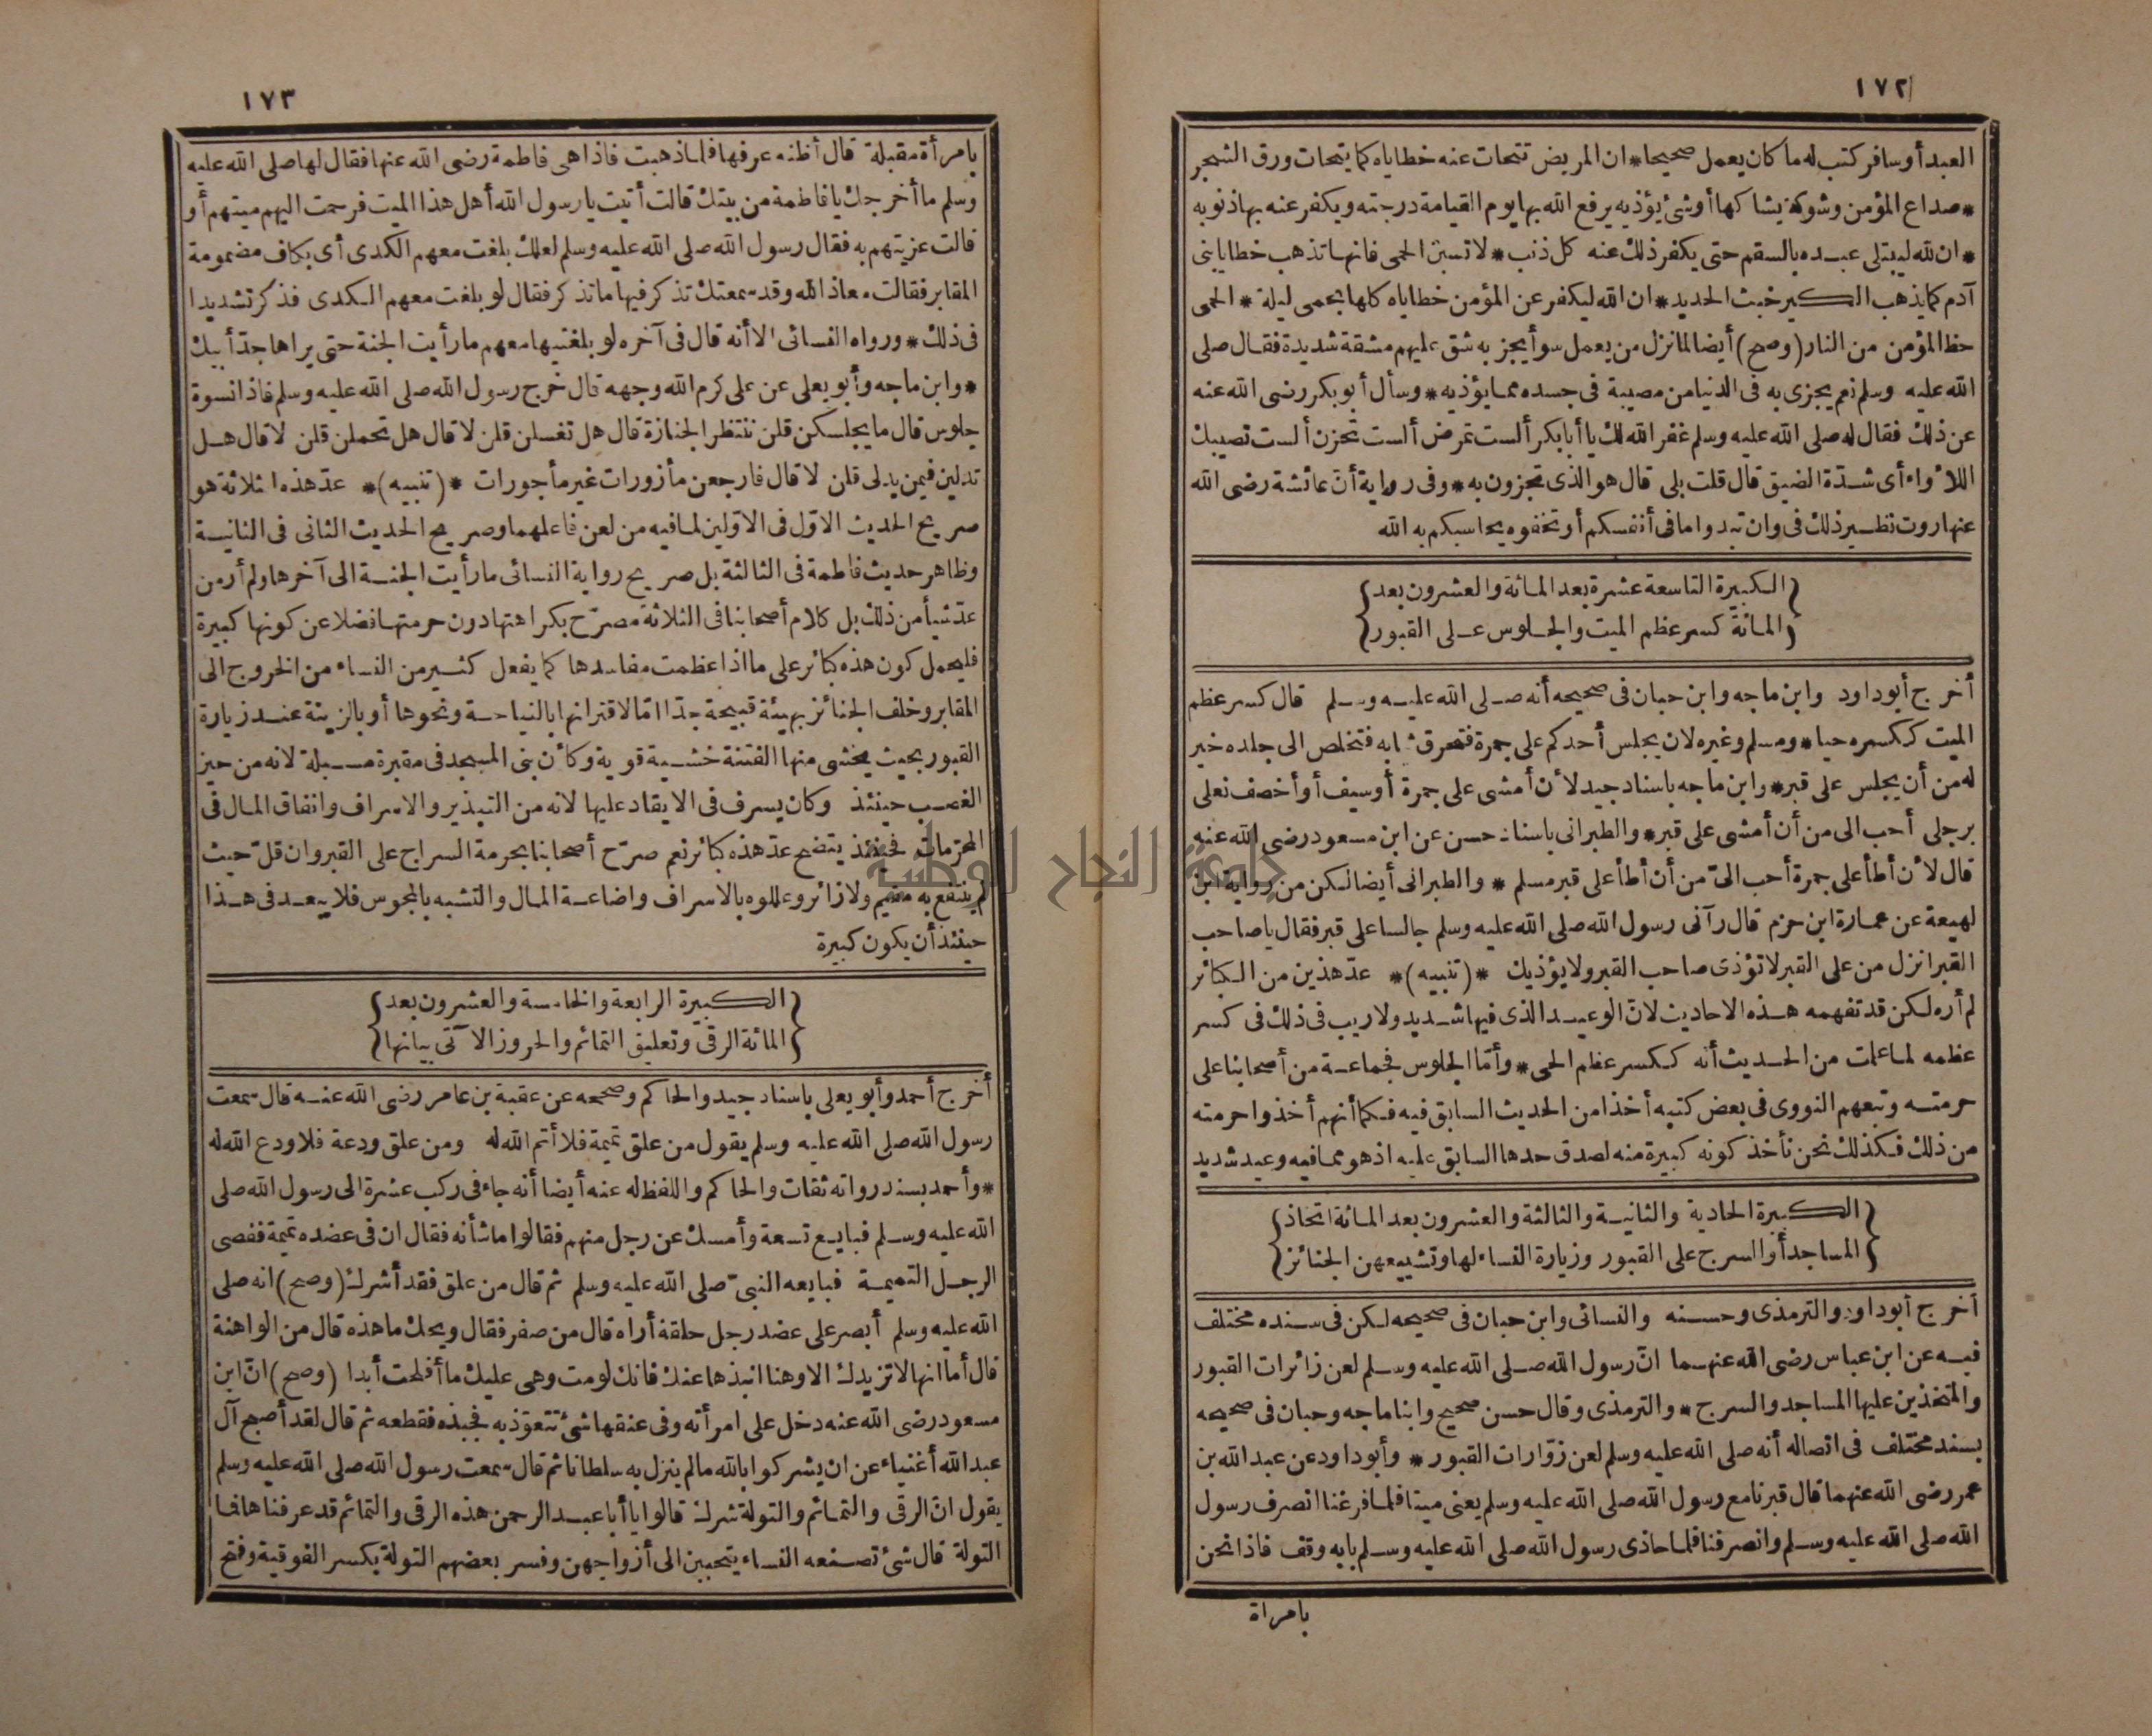 ١٧٢
العبد أو سافر كتب له ما كان يعمل صحيحا * ان المريض تتحات عنه خطاياه كما يتحات ورق الشجر
* صداع المؤمن وشوكة يشاكها أو شئ يؤذيه يرفع الله بها يوم القيامة درجته ويكفر عنه بها ذنوبه
* ان الله ليبتلى عبده بالسقم حتى يكفر ذلك عنه كل ذنب * لا تسبن الحمى فانها تذهب خطايا بنى
آدم كما يذهب الكير خبث الحديد * ان الله ليكفر عن المؤمن خطاياه كلها بحمى ليلة * الحمى
حظ المؤمن من النار (وصح) أيضا لما نزل من يعمل سوأ يجز به شق عليهم مشقة شديدة فقال صلى
الله عليه وسلم نعم يجزى به فى الدنيا من مصيبة فى جسده مما يؤذيه * وسأل أبو بكر رضى الله عنه
عن ذلك فقال له صلى الله عليه وسلم غفر الله لك يا أبا بكر ألست تمرض ألست تحزن ألست تصيبك
اللا ٔواء أى شدّة الضيق قال قلت بلى قال هو الذى تجزون به * وفى رواية أن عائشة رضى الله
عنها روت نظير ذلك فى وان تبدوا ما فى أنفسكم أو تخفوه يحاسبكم به الله
{ الكبيرة التاسعة عشرة بعد المائة والعشرون بعد }
{ المائة كسر عظم الميت والجلوس على القبور }
أخرج أبو داود وابن ماجه وابن حبان فى صحيحه أنه صلى الله عليه وسلم قال كسر عظم
الميت ككسره حيا * ومسلم وغيره لان يجلس أحدكم على جمرة فتحرق ثيابه فتخلص الى جلده خير
له من أن يجلس على قبر * وابن ماجه باسناد جيد لا ٔن أمشى على جمرة أو سيف أو أخصف نعلى
برجلى أحب الى من أن أمشى على قبر * والطبرانى باسناد حسن عن ابن مسعود رضى الله عنه
قال لا ٔن أطأ على جمرة أحب الىّ من أن أطأ على قبر مسلم * والطبرانى أيضا لكن من رواية ابن
لهيعة عن عمارة ابن حزم قال رآنى رسول الله صلى الله عليه وسلم جالسا على قبر فقال يا صاحب
القبر انزل من على القبر لا تؤذى صاحب القبر ولا يؤذيك * (تنبيه) * عدّ هذين من الكبائر
لم أره لكن قد تفهمه هذه الاحاديث لانّ الوعيد الذى فيها شديد ولا ريب فى ذلك فى كسر
عظمه لما علمت من الحديث أنه ككسر عظم الحى * وأمّا الجلوس فجماعة من أصحابنا على
حرمته وتبعهم النووى فى بعض كتبه أخذا من الحديث السابق فيه فكما أنهم أخذوا حرمته
من ذلك فكذلك نحن نأخذ كونه كبيرة منه لصدق حدها السابق عليه اذ هو مما فيه وعيد شديد
{ الكبيرة الحادية والثانية والثالثة والعشرون بعد المائة اتخاذ }
{ المساجد أو السرج على القبور وزيارة النساء لها وتشييعهن الجنائز }
أخرج أبو داود والترمذى وحسنه والنسائى وابن حبان فى صحيحه لكن فى سنده مختلف
فيه عن ابن عباس رضى الله عنهما انّ رسول الله صلى الله عليه وسلم لعن زائرات القبور
والمتخذين عليها المساجد والسرج * والترمذى وقال حسن صحيح وابنا ماجه وحبان فى صحيحه
بسند مختلف فى اتصاله أنه صلى الله عليه وسلم لعن زوّارات القبور * وأبو داود عن عبد الله بن
عمر رضى الله عنهما قال قبرنا مع رسول الله صلى الله عليه وسلم يعنى ميتا فلما فرغنا انصرف رسول
الله صلى الله عليه وسلم وانصرفنا فلما حاذى رسول الله صلى الله عليه وسلم بابه وقف فاذا نحن
بامرأة
١٧٣
بامرأة مقبلة قال أظنه عرفها فلما ذهبت فاذا هى فاطمة رضى الله عنها فقال لها صلى الله عليه
وسلم ما أخرجك يا فاطمة من بيتك قالت أتيت يا رسول الله أهل هذا الميت فرحمت اليهم ميتهم أو
قالت عزيتهم به فقال رسول الله صلى الله عليه وسلم لعلك بلغت معهم الكدى أى بكاف مضمومة
المقابر فقالت معاذ الله وقد سمعتك تذكر فيها ما تذكر فقال لو بلغت معهم الكدى فذكر تشديدا
فى ذلك * ورواه النسائى الا أنه قال فى آخره لو بلغتيها معهم ما رأيت الجنة حتى يراها جدّ أبيك
* وابن ماجه وأبو يعلى عن على كرم الله وجهه قال خرج رسول الله صلى الله عليه وسلم فاذا نسوة
جلوس قال ما يجلسكن قلن ننتظر الجنازة قال هل تغسلن قلن لا قال هل تحملن قلن لا قال هل
تدلين فيمن يدلى قلن لا قال فارجعن مأزورات غير مأجورات * (تنبيه) * عدّ هذه الثلاثة هو
صريح الحديث الاوّل فى الاوّلين لما فيه من لعن فاعلهما وصريح الحديث الثانى فى الثانية
وظاهر حديث فاطمة فى الثالثة بل صريح رواية النسائى ما رأيت الجنة الى آخرها ولم أر من
عدّ شيأ من ذلك بل كلام أصحابنا فى الثلاثة مصرّح بكراهتها دون حرمتها فضلا عن كونها كبيرة
فليحمل كون هذه كبائر على ما اذا عظمت مفاسدها كما يفعل كثير من النساء من الخروج الى
المقابر وخلف الجنائز بهيئة قبيحة جدّا امّا لاقترانها بالنياحة ونحوها أو بالزينة عند زيارة
القبور بحيث يخشى منها الفتنة خشية قوية وكأن بنى المسجد فى مقبرة مسبلة لانه من حيز
الغصب حينئذ وكان يسرف فى الايقاد عليها لانه من التبذير والاسراف وانفاق المال فى
المحرّمات فحينئذ يتضح عدّ هذه كبائر نعم صرّح أصحابنا بحرمة السراج على القبر وان قلّ حيث
لم ينتفع به مقيم ولا زائر وعللوه بالاسراف واضاعة المال والتشبه بالمجوس فلا يبعد فى هذا
حينئذ أن يكون كبيرة
{ الكبيرة الرابعة والخامسة والعشرون بعد }
{ المائة الرقى وتعليق التمائم والحروز الا ٓتى بيانها }
أخرج أحمد وأبو يعلى باسناد جيد والحاكم وصححه عن عقبة بن عامر رضى الله عنه قال سمعت
رسول الله صلى الله عليه وسلم يقول من علق تميمة فلا أتم الله له ومن علق ودعة فلا ودع الله له
* وأحمد بسند رواته ثقات والحاكم واللفظ له عنه أيضا أنه جاء فى ركب عشرة الى رسول الله صلى
الله عليه وسلم فبايع تسعة وأمسك عن رجل منهم فقالوا ما شأنه فقال ان فى عضده تميمة فقصى
الرجل التميمة فبايعه النبىّ صلى الله عليه وسلم ثم قال من علق فقد أشرك (وصح) انه صلى
الله عليه وسلم أبصر على عضد رجل حلقة أراه قال من صفر فقال ويحك ما هذه قال من الواهنة
قال أما انها لا تزيدك الا وهنا انبذها عنك فانك لو مت وهى عليك ما أفلحت أبدا (وصح) انّ ابن
مسعود رضى الله عنه دخل على امرأته وفى عنقها شئ تتعوّذ به فجبذه فقطعه ثم قال لقد أصبح آل
عبد الله أغنياء عن ان يشركوا بالله ما لم ينزل به سلطانا ثم قال سمعت رسول الله صلى الله عليه وسلم
يقول انّ الرقى والتمائم والتولة شرك قالوا يا أبا عبد الرحمن هذه الرقى والتمائم قد عرفناها فما
التولة قال شئ تصنعه النساء يتحببن الى أزواجهن وفسر بعضهم التولة بكسر الفوقية وفتح
جامعة النجاح الوطنية